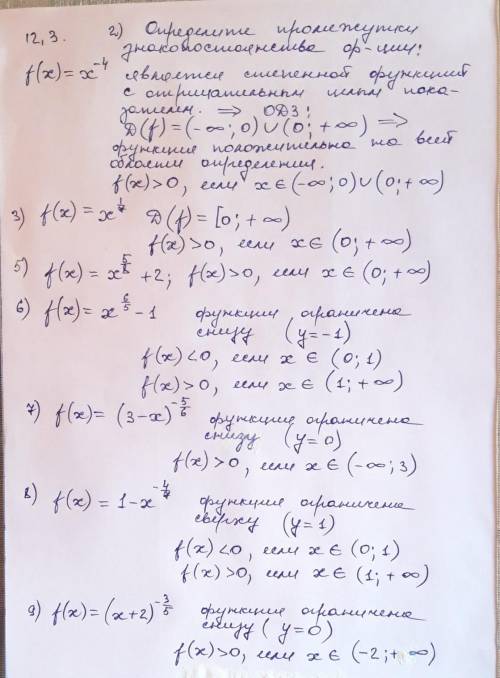 12,3. 2) Определите промежутки
знакопостоянства ф-ции:
f(x) = x⁻⁴ является степенной функцией
с отрицательным целым пока-
зателем. ⇒ ОДЗ:
D(f) = (-∞; 0) ∪ (0; +∞) ⇒
функция положительна на всей
области определения.
f(x) > 0, если x ∈ (-∞; 0) ∪ (0; +∞)
3) f(x) = x D(f) = [0; +∞)
f(x) > 0, если x ∈ (0; +∞)
5) f(x) = x + 2; f(x) > 0, если x ∈ (0; +∞)
6) f(x) = x^(6/5) - 1 функция ограничена
снизу (y = -1)
f(x) < 0, если x ∈ (0; 1)
f(x) > 0, если x ∈ (1; +∞)
7) f(x) = (3-x)^(-5/6) функция ограничена
снизу (y = 0)
f(x) > 0, если x ∈ (-∞; 3)
8) f(x) = 1 - x функция ограничена
сверху (y = 1)
f(x) < 0, если x ∈ (0; 1)
f(x) > 0, если x ∈ (1; +∞)
9) f(x) = (x+2)^(-3/5) функция ограничена
снизу (y = 0)
f(x) > 0, если x ∈ (-2; +∞)